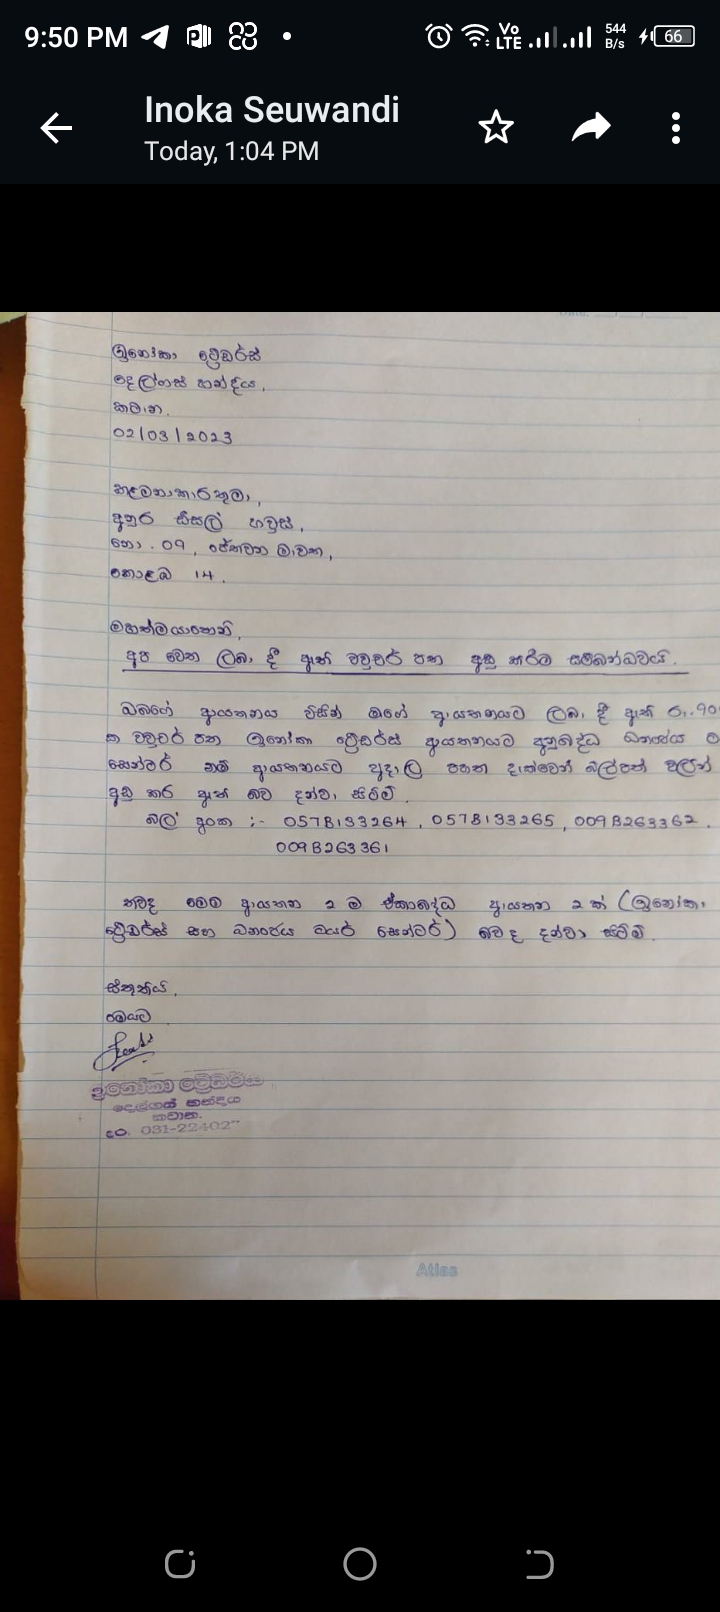 9:50 PM
Vo LTE 544 B/s 66
Inoka Seuwandi
Today, 1:04 PM
ඉනෝකා ට්‍රේඩර්ස්
දෙල්ගස් හන්දිය,
කවාන.
02/03/2023
කළමනාකාරතුමා,
අනුර සීසල් හවුස්,
නො. 09, ජේතවන මාවත,
කොළඹ 14.
මහත්මයාණෙනි,
අප වෙත ලබා දී ඇති වවුචර් පත අඩු කිරීම සම්බන්ධවයි.
ඔබගේ ආයතනය විසින් මගේ ආයතනයට ලබා දී ඇති රු. 90
ක වවුචර් පත ඉනෝකා ට්‍රේඩර්ස් ආයතනයට අනුබද්ධ
සෙන්ටර් නම් ආයතනයට අදාල පහත දැක්වෙන බිල්පත් වලින්
අඩු කර ඇති බව දන්වා සිටිමි.
බිල් අංක :- 0578133264, 0578133265, 009B263362,
009B263361
තවද මෙම ආයතන 2 ම ඒකාබද්ධ ආයතන 2ක් (ඉනෝකා
ට්‍රේඩර්ස් සහ ධනංජය මයර් සෙන්ටර්) බව ද දන්වා සිටිමි.
ස්තූතියි.
මෙයට
ඉනෝකා ට්‍රේඩර්ස්
දෙල්ගස් හන්දිය
කවාන.
දුර. 031-224027
Atlas